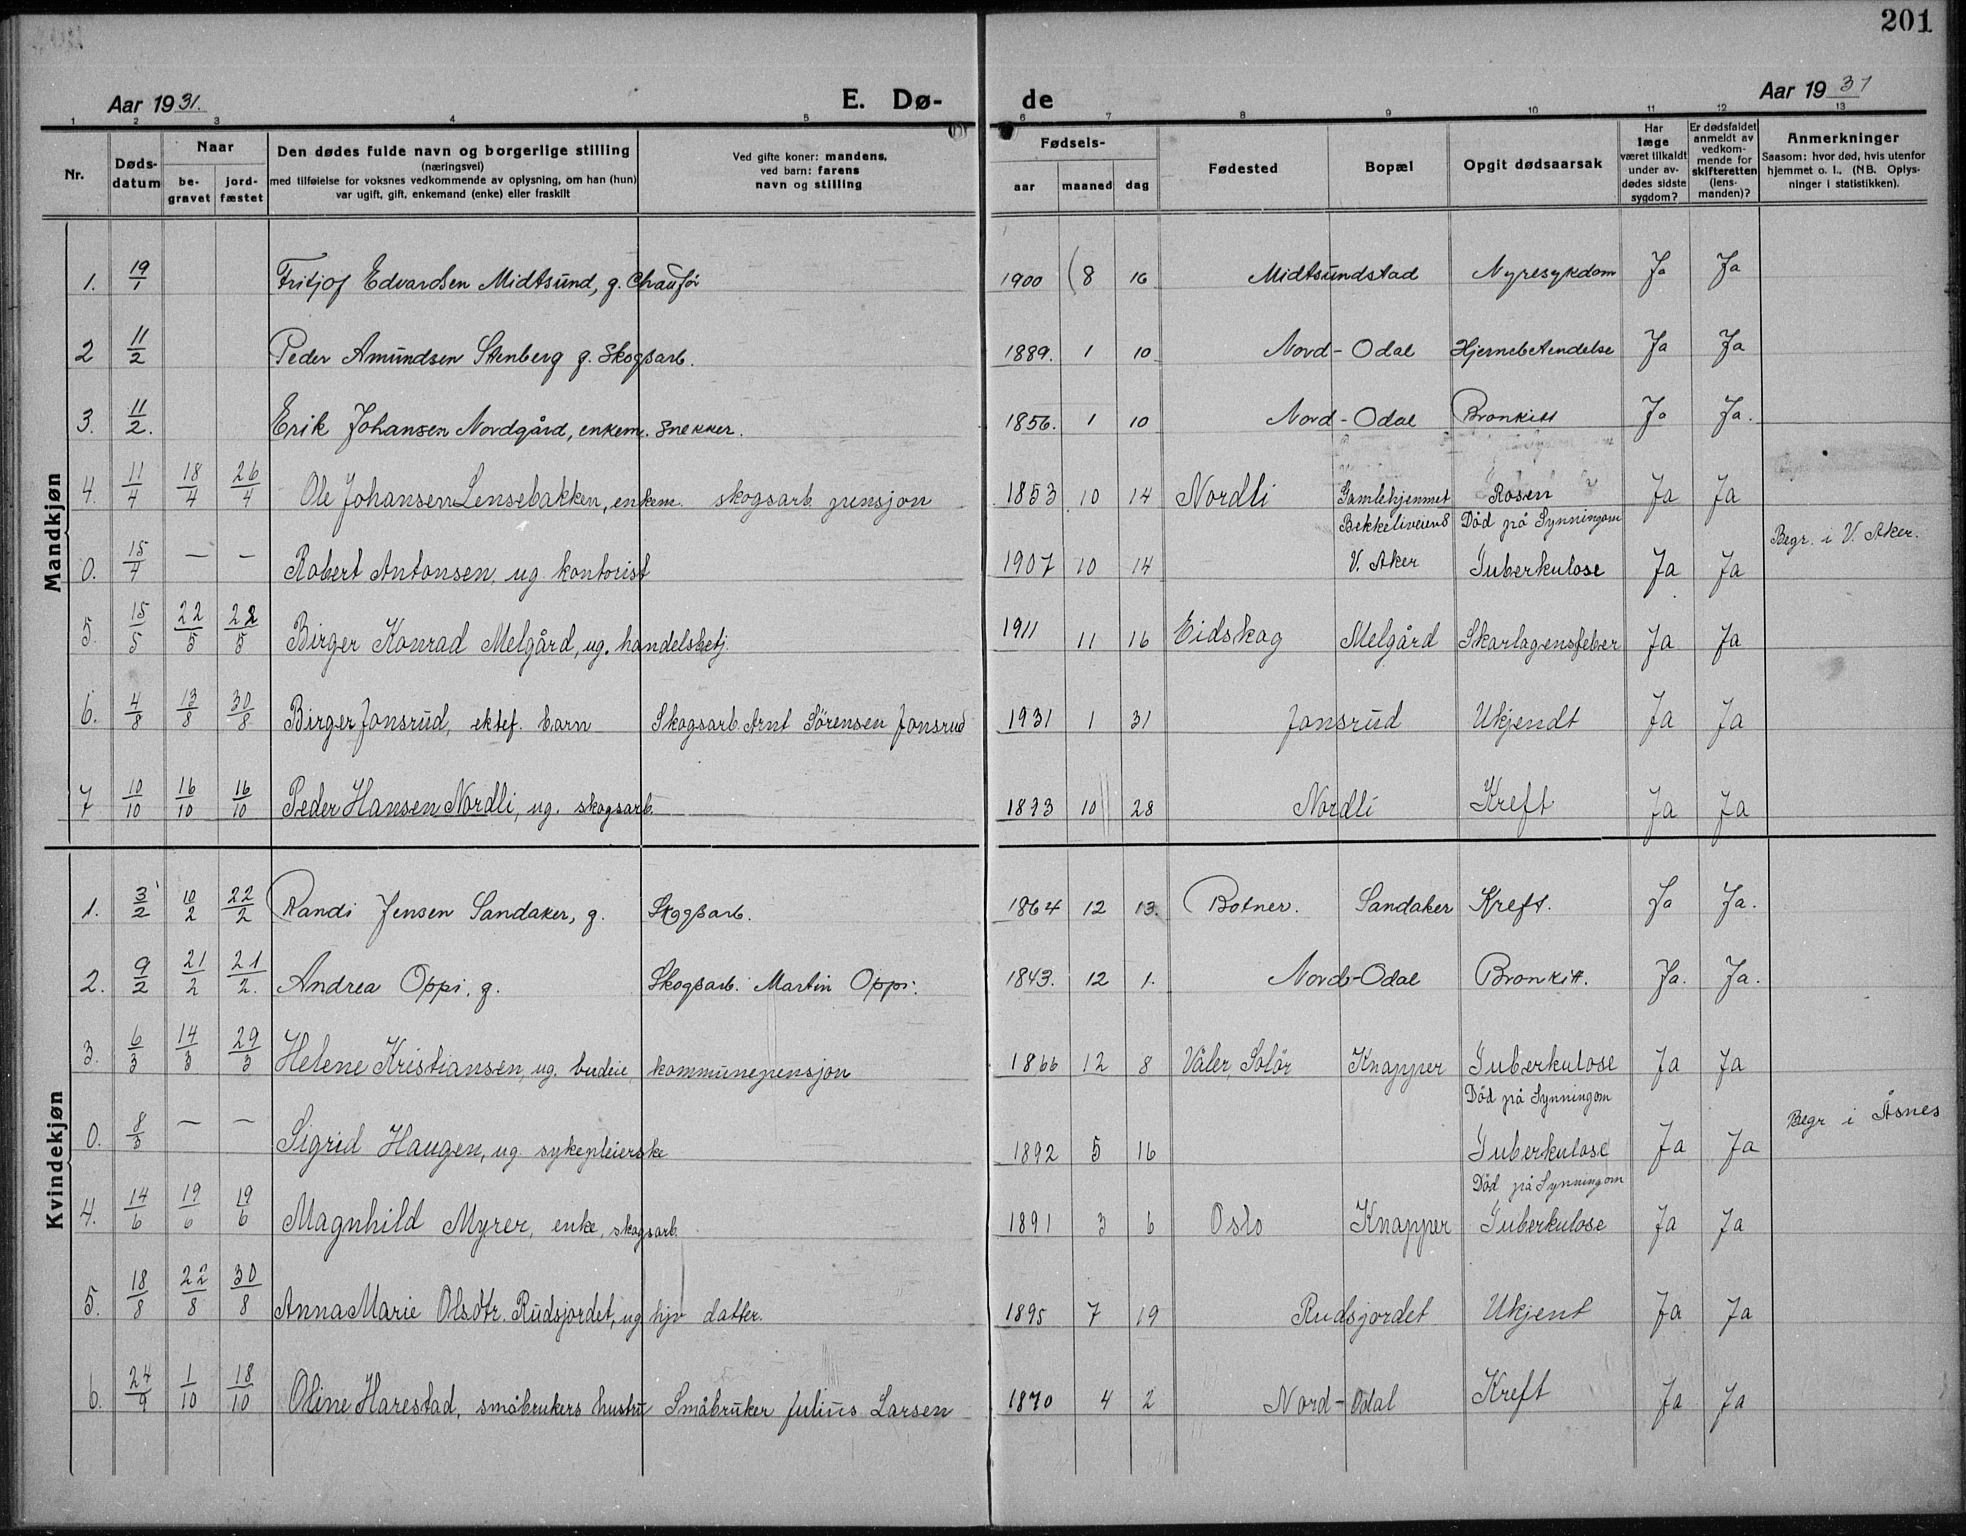 201
Aar 1931. E. Dø- de Aar 1931
1 2 3 4 5 6 7 8 9 10 11 12 13
Nr. Døds-datum Naar be-gravet jord-fæstet Den dødes fulde navn og borgerlige stilling (næringsvei) med tilføielse for voksnes vedkommende av oplysning, om han (hun) var ugift, gift, enkemand (enke) eller fraskilt Ved gifte koner: mandens, ved barn: farens navn og stilling Fødsels- aar maaned dag Fødested Bopæl Opgit dødsaarsak Har læge været tilkaldt under av-dødes sidste sygdom? Er dødsfaldet anmeldt av vedkom-mende for skifteretten (lens-manden)? Anmerkninger Saasom: hvor død, hvis utenfor hjemmet o. l., (NB. Oplys-ninger i statistikken).
Mandkjøn
1. 19/1 Fritjof Edvardsen Midtsund, g. Chaufør 1900 8 16 Midtsundstad Nyresykdom Ja Ja
2 11/2 Peder Amundsen Stenberg g. Skogsarb. 1889. 1 10 Nord-Odal Hjernebetendelse Ja Ja
3. 11/2. Erik Johansen Nordgård, enkem. Snekker. 1856. 1 10 Nord-Odal Bronkitt Ja Ja.
4. 11/4 18/4 26/4 Ole Johansen Lensebakken, enkem. skogsarb. pensjon 1853 10 14 Nordli Gamlehjemmet Rosen Ja Ja
Bekkeliveien 8 Död på Synningom
0. 15/4 — – Robert Antonsen, ug. kontorist 1907 10 14 V. Aker Tuberkulose Ja Ja Begr. i V. Aker.
5. 15/5 22/5 22/5 Birger Konrad Melgård, ug. handelsbetj. 1911 11 16 Eidskog Melgård Skarlagensfeber Ja Ja
6. 4/8 13/8 30/8 Birger Jonsrud, ektef. barn Skogsarb. Arnt Sörensen Jonsrud 1931 1 31 Jonsrud Ukjendt Ja Ja
7. 10/10 16/10 16/10 Peder Hansen Nordli, ug. skogsarb. 1833 10 28 Nordli Kreft Ja Ja
Kvindekjøn
1. 3/2 10/2 22/2 Randi Jensen Sandaker, g. Skogsarb. 1864 12 13. Botner. Sandaker Kreft. Ja Ja.
2. 9/2 21/2 21/2. Andrea Oppi, g. Skogsarb. Martin Oppi. 1843. 12 1. Nord-Odal Bronkitt. Ja. Ja.
3. 6/3 14/3 29/3 Helene Kristiansen, ug. budeie, kommunepensjon 1866 12 8 Våler, Solör Knapper Tuberkulose Ja Ja
Död på Synningom
0. 8/5 — – Sigrid Haugen, ug. sykepleierske 1892 5 16 Tuberkulose Ja Ja Begr i Åsnes
Död på Synningom
4. 14/6 19/6 19/6 Magnhild Myrer, enke, skogsarb. 1891 3 6 Oslo Knapper Tuberkulose Ja Ja
5. 18/8 22/8 30/8 Anna Marie Olsdtr. Rudsjordet, ug hjv datter. 1895 7 19 Rudsjordet Ukjent Ja Ja
6. 24/9 1/10 18/10 Oline Harestad, småbrukers hustru Småbruker Julius Larsen 1870 4 2 Nord-Odal Kreft Ja Ja